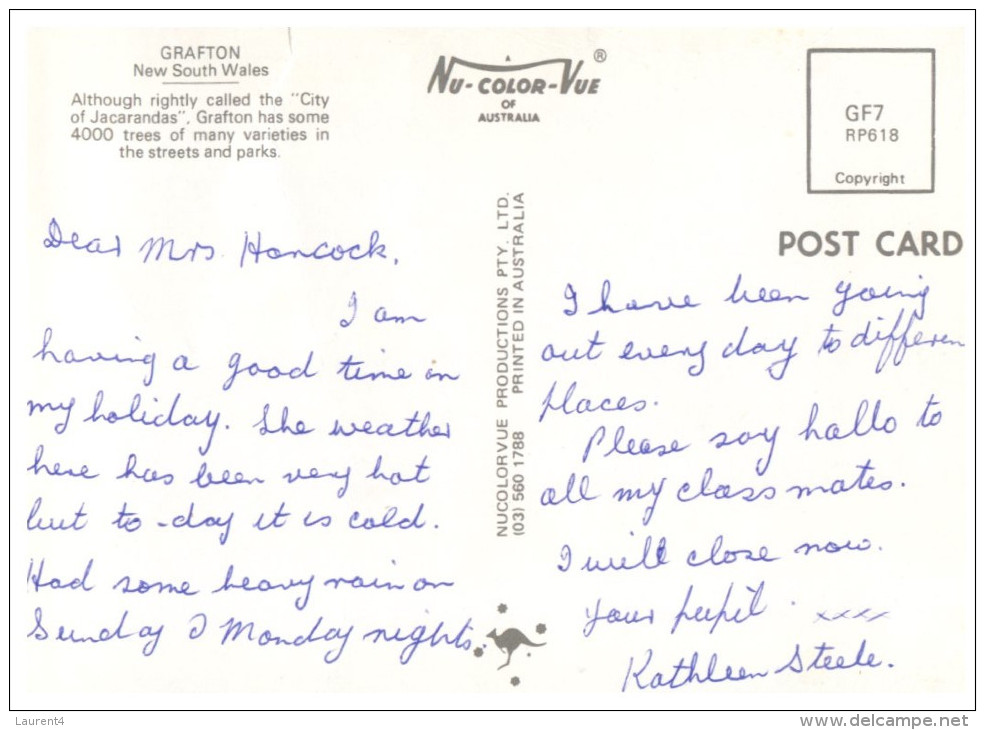 GRAFTON
New South Wales
Although rightly called the "City
of Jacarandas", Grafton has some
4000 trees of many varieties in
the streets and parks.
NU-COLOR-VUE ®
OF
AUSTRALIA
GF7
RP618
Copyright
POST CARD
NUCOLORVUE PRODUCTIONS PTY. LTD.
(03) 560 1788 PRINTED IN AUSTRALIA
Dear Mrs Hancock,
I am
having a good time on
my holiday. The weather
here has been very hot
but to-day it is cold.
Had some heavy rain on
Sunday & Monday nights.
I have been going
out every day to differen
places.
Please say hallo to
all my classmates.
I will close now.
Your pupil. xxxx
Kathleen Steele.
Laurent4
www.delcampe.net